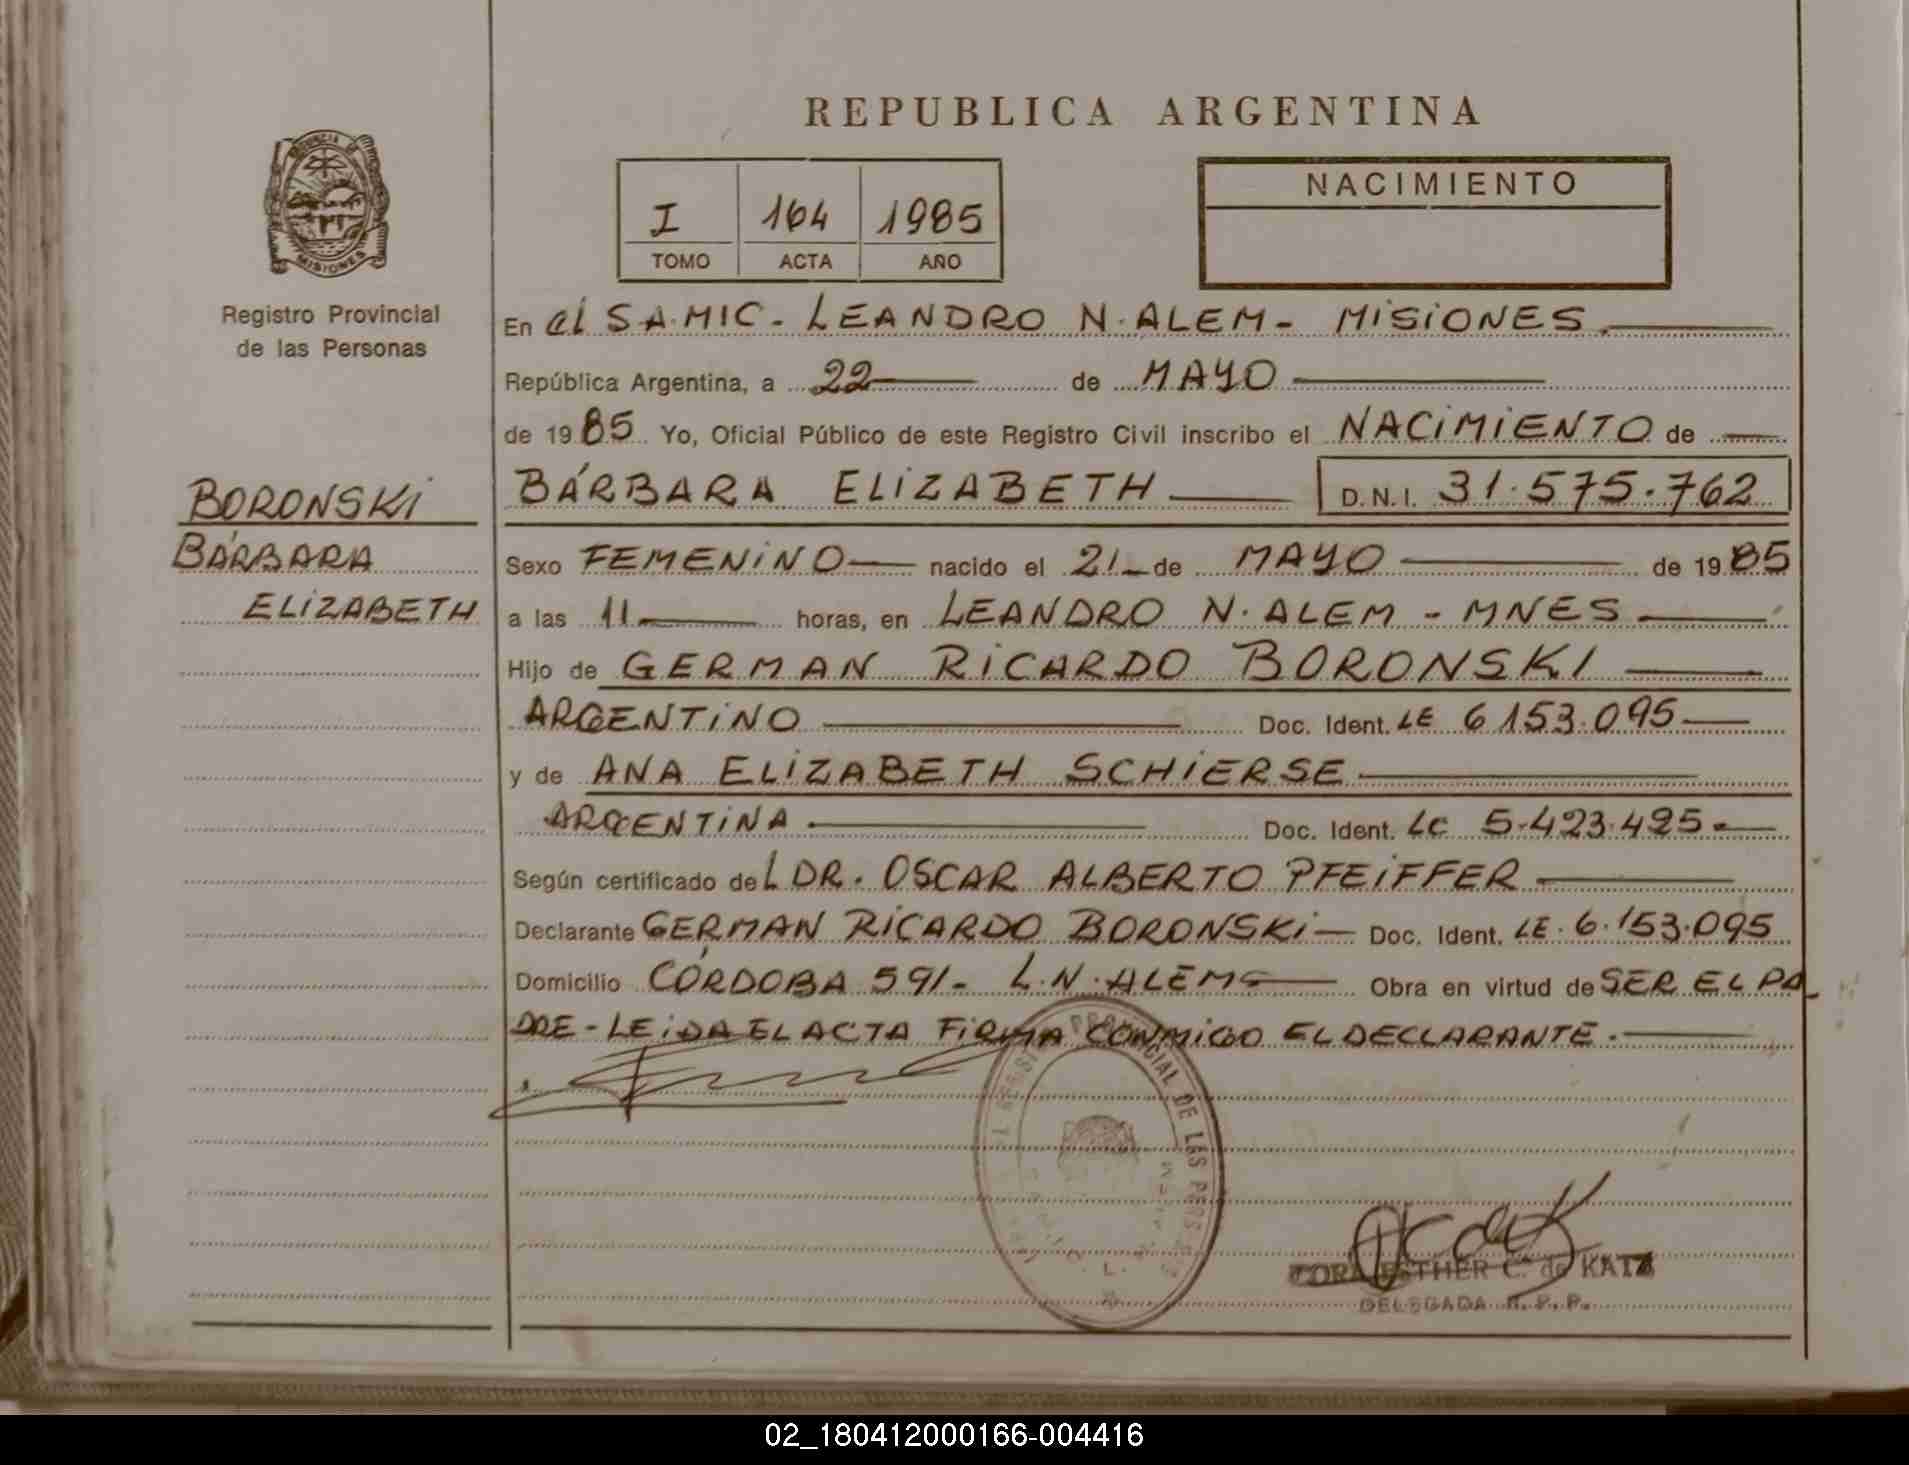 REPUBLICA ARGENTINA
PROVINCIA DE
MISIONES
Registro Provincial
de las Personas
I 164 1985
TOMO ACTA AÑO
NACIMIENTO
En el SAMIC - LEANDRO N. ALEM - MISIONES.
República Argentina, a 22 de MAYO
de 1985 Yo, Oficial Público de este Registro Civil inscribo el NACIMIENTO de
BÁRBARA ELIZABETH D.N.I. 31.575.762
BORONSKI
BÁRBARA
ELIZABETH
Sexo FEMENINO nacido el 21 de MAYO de 1985
a las 11 horas, en LEANDRO N. ALEM - MNES
Hijo de GERMAN RICARDO BORONSKI
ARGENTINO Doc. Ident. LE 6153.095
y de ANA ELIZABETH SCHIERSE
ARGENTINA Doc. Ident. LC 5.423.495.
Según certificado del DR. OSCAR ALBERTO PFEIFFER
Declarante GERMAN RICARDO BORONSKI Doc. Ident. LE. 6.153.095
Domicilio CÓRDOBA 591- L.N.ALEM Obra en virtud de SER EL PA
DRE - LEIDA EL ACTA FIRMA CONMIGO EL DECLARANTE.
PROVINCIAL DE LAS PERS
ESTHER C. de KATZ
DELEGADA R. P. P.
02_180412000166-004416